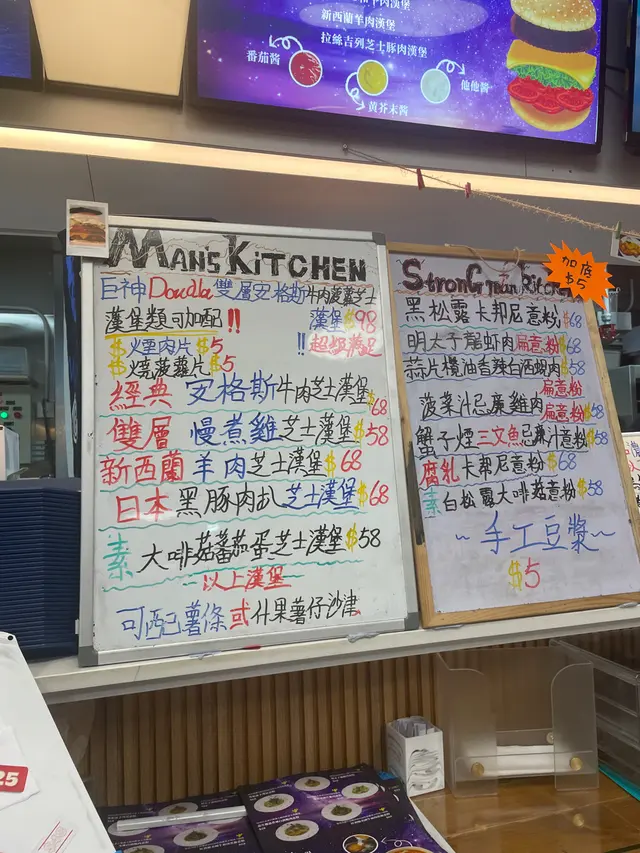 新西蘭羊肉漢堡
拉絲吉列芝士豚肉漢堡
番茄醬
他他醬
黄芥末醬
MAN'S KITCHEN
巨神Double雙層安格斯牛肉菠蘿芝士
漢堡$98
漢堡類可加配!!
$煙肉片$5
!!超級滿足
$燒菠蘿片$5
經典 安格斯牛肉芝士漢堡$68
雙層 慢煮雞芝士漢堡$58
新西蘭羊肉芝士漢堡$68
日本黑豚肉扒芝士漢堡$68
素 大啡菇蕃茄蛋芝士漢堡$58
以上漢堡
可配薯條或什果薯仔沙津
StronG man Kitchen
加底
$5
黑松露卡邦尼意粉$68
明太子龍蝦肉扁意粉$68
蒜片欖油香辣白酒蜆肉$58
扁意粉
菠菜汁忌廉雞肉扁意粉$68
蟹子煙三文魚忌廉汁意粉$68
腐乳卡邦尼意粉$68
素白松露大啡菇意粉$58
~手工豆漿~
$5
25